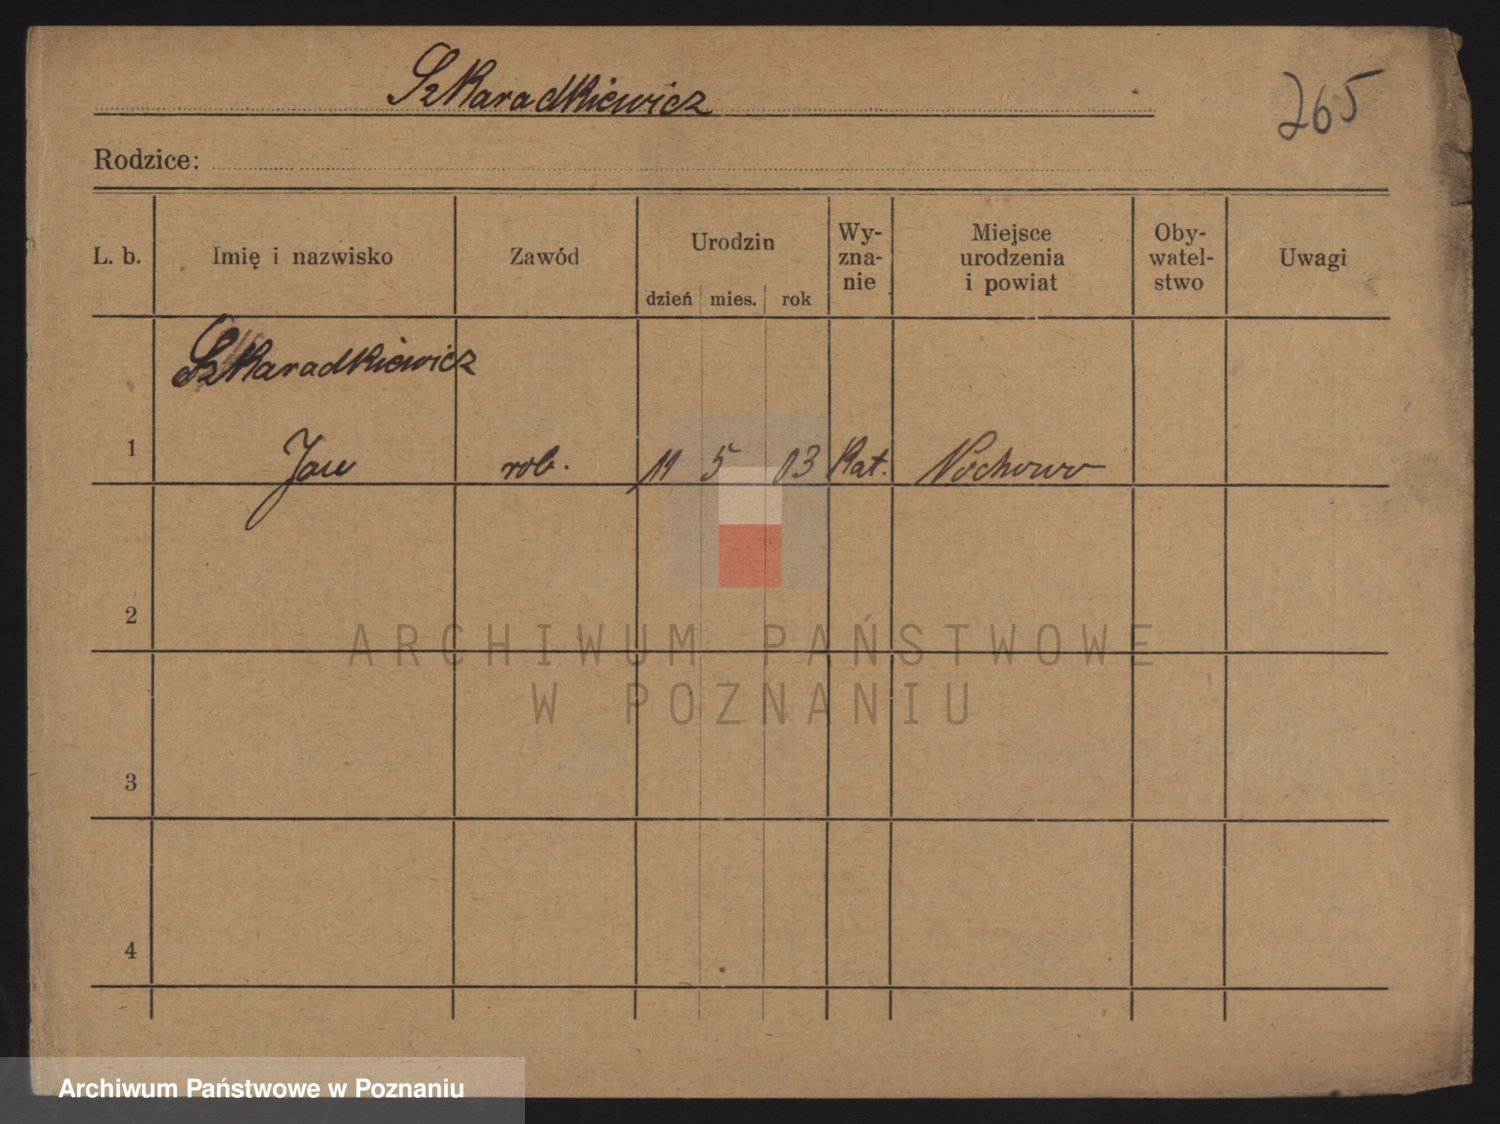 Szkaradkiewicz
265
Rodzice:
L. b.
Imię i nazwisko
Zawód
Urodzin
dzień mies. rok
Wy-
zna-
nie
Miejsce
urodzenia
i powiat
Oby-
watel-
stwo
Uwagi
Szkaradkiewicz
1 Jan rob. 11 5 03 Kat. Nochowo
2
3
4
ARCHIWUM PAŃSTWOWE
W POZNANIU
Archiwum Państwowe w Poznaniu